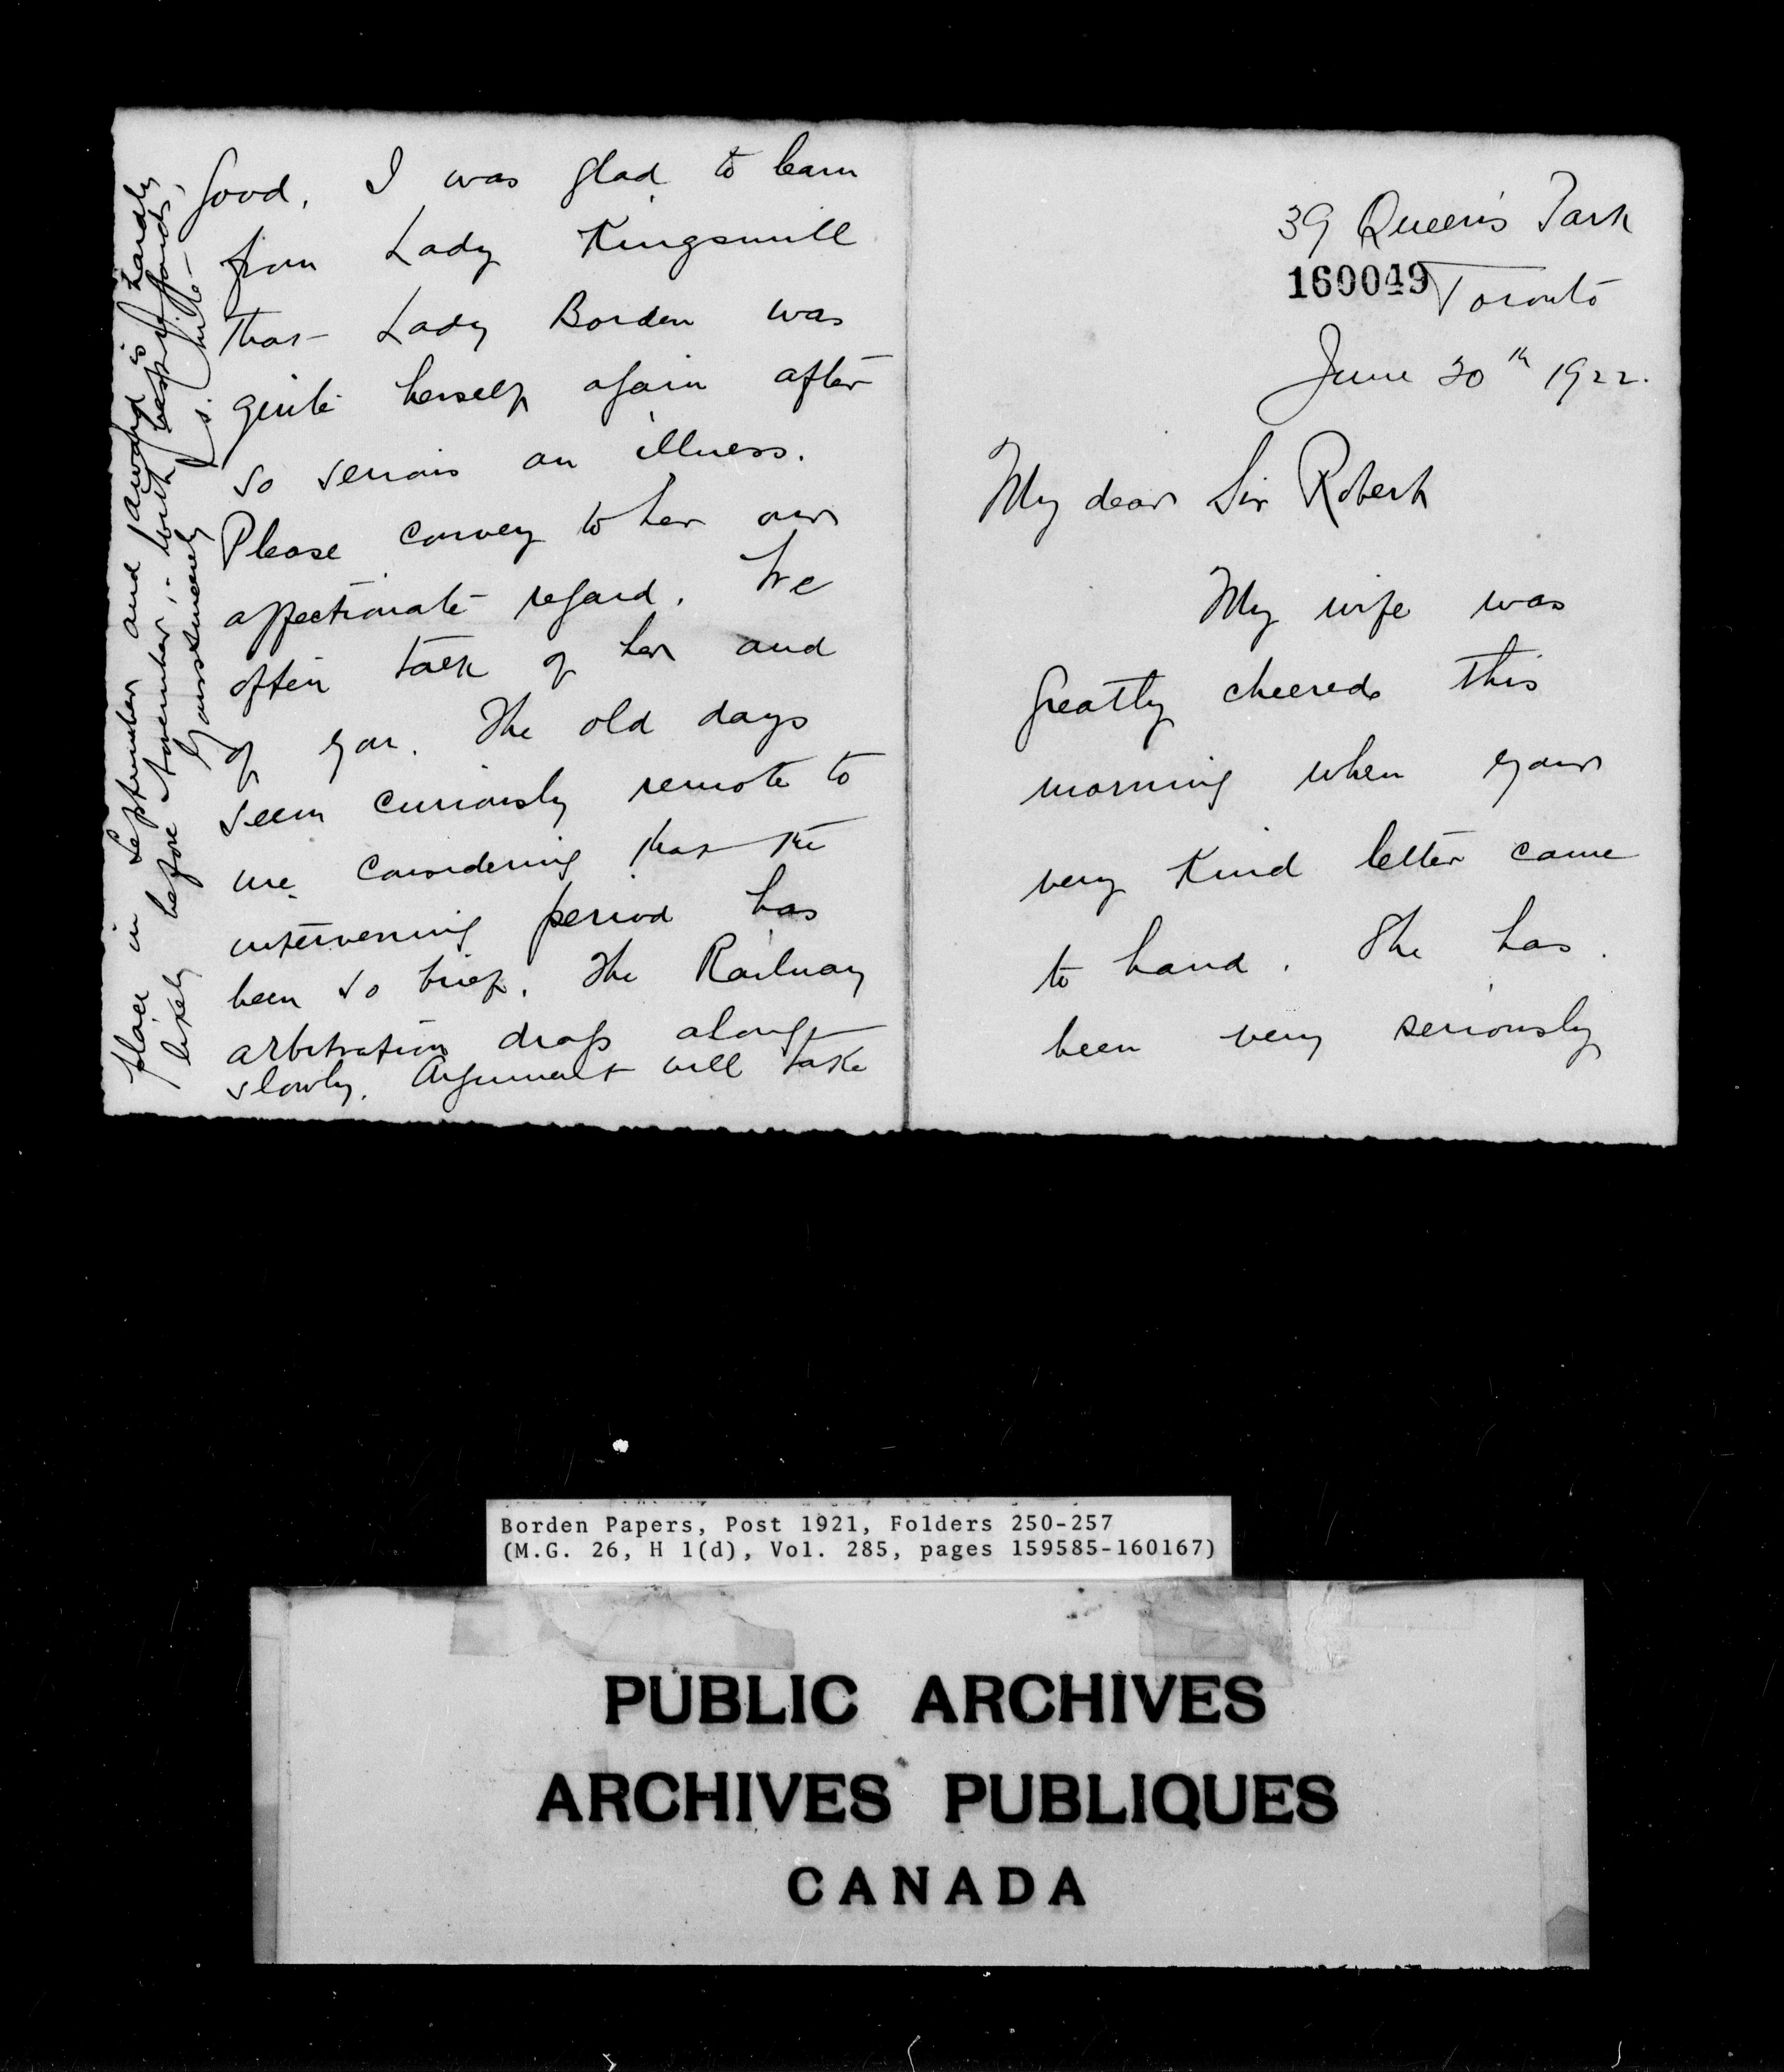 39 Queen's Park
160049
Toronto
June 20th 1922.
My dear Sir Robert
My wife was
greatly cheered this
morning when your
very kind letter came
to hand. She has
been very seriously
good. I was glad to learn
from Lady Kingsmill
that Lady Borden was
quite herself again after
so serious an illness.
Please convey to her our
affectionate regard. We
often talk of her and
of you. The old days
seem curiously remote to
me considering that the
intervening period has
been so brief. The Railway
arbitration drags along
slowly. Argument will take
place in September and award is hardly
likely before November; - with best regards,
Yours sincerely
Borden Papers, Post 1921, Folders 250-257
(M.G. 26, H 1(d), Vol. 285, pages 159585-160167)
PUBLIC ARCHIVES
ARCHIVES PUBLIQUES
CANADA